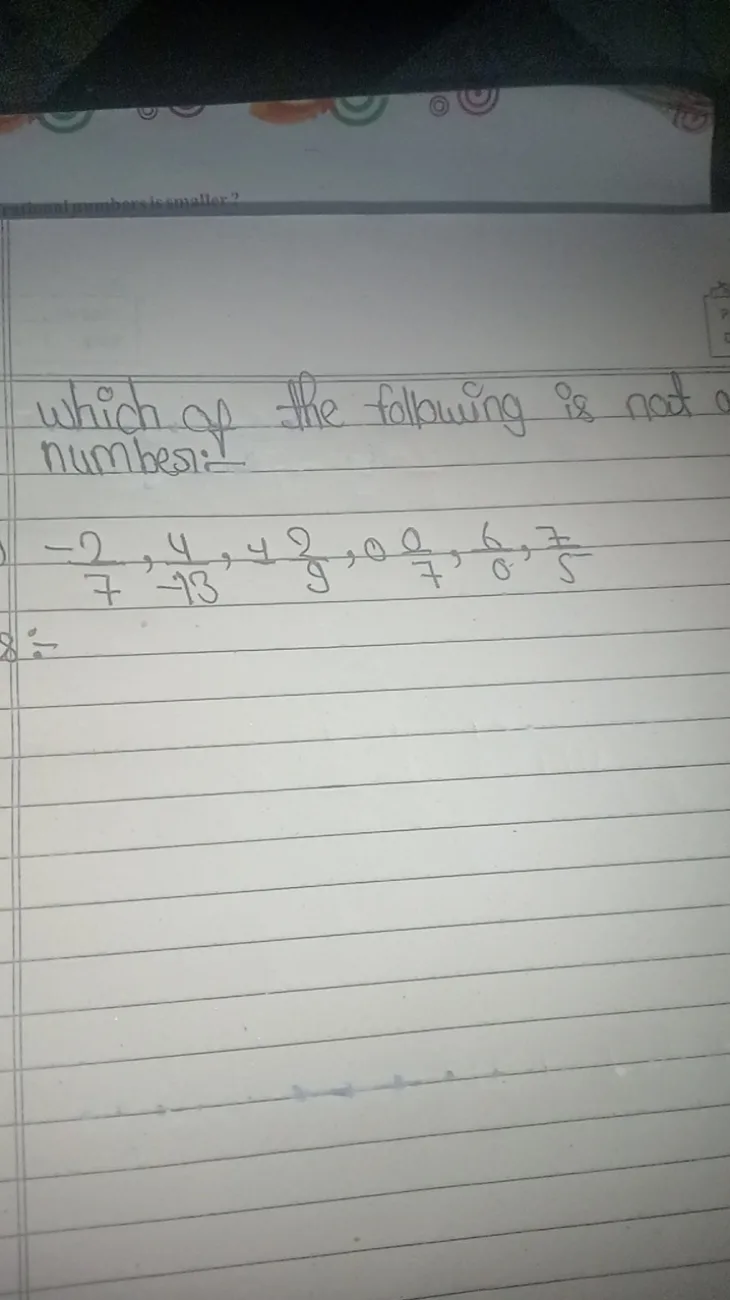 rational numbers is smaller ?
which of the following is not a
number:-
-2/7, 4/-13, 4 2/9, 0 0/7, 6/0, 7/5
8:-